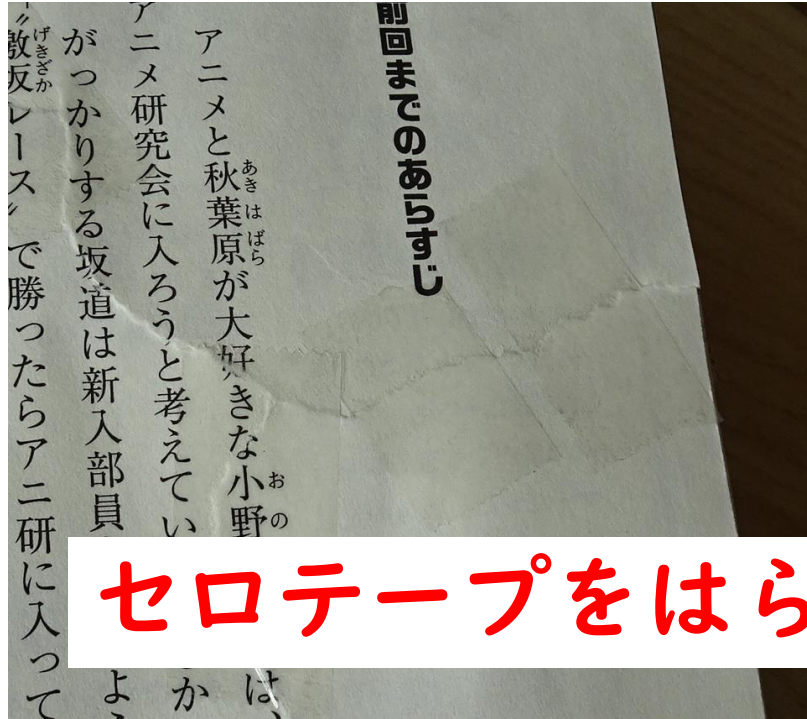 前回までのあらすじ
アニメと秋葉原が大好きな小野
あきはばら
おの
は、
アニメ研究会に入ろうと考えてい
か
がっかりする坂道は新入部員
よ
激坂レース〟で勝ったらアニ研に入って
げきざか
セロテープをはら